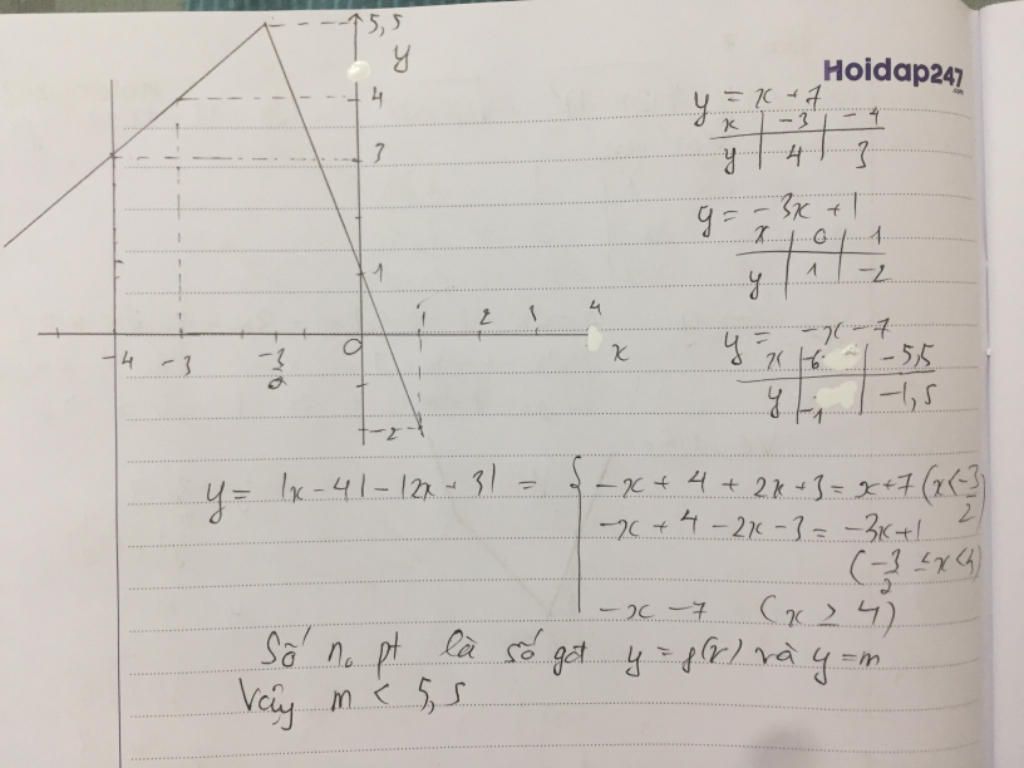 5,5
y
4
3
1
-4 -3 -3/2 O 1 2 4 x
-2
Hoidap247
.com
y = x + 7
x | -3 | -4
y | 4 | 3
y = -3x + 1
x | 0 | 1
y | 1 | -2
y = -x - 7
x | -6 | -5,5
y | -1 | -1,5
y = |x - 4| - |2x + 3| = { -x + 4 + 2x + 3 = x + 7 (x < -3/2)
-x + 4 - 2x - 3 = -3x + 1
(-3/2 ≤ x < 4)
-x - 7 (x ≥ 4)
Số no pt là số gđ y = f(x) và y = m
Vậy m < 5,5